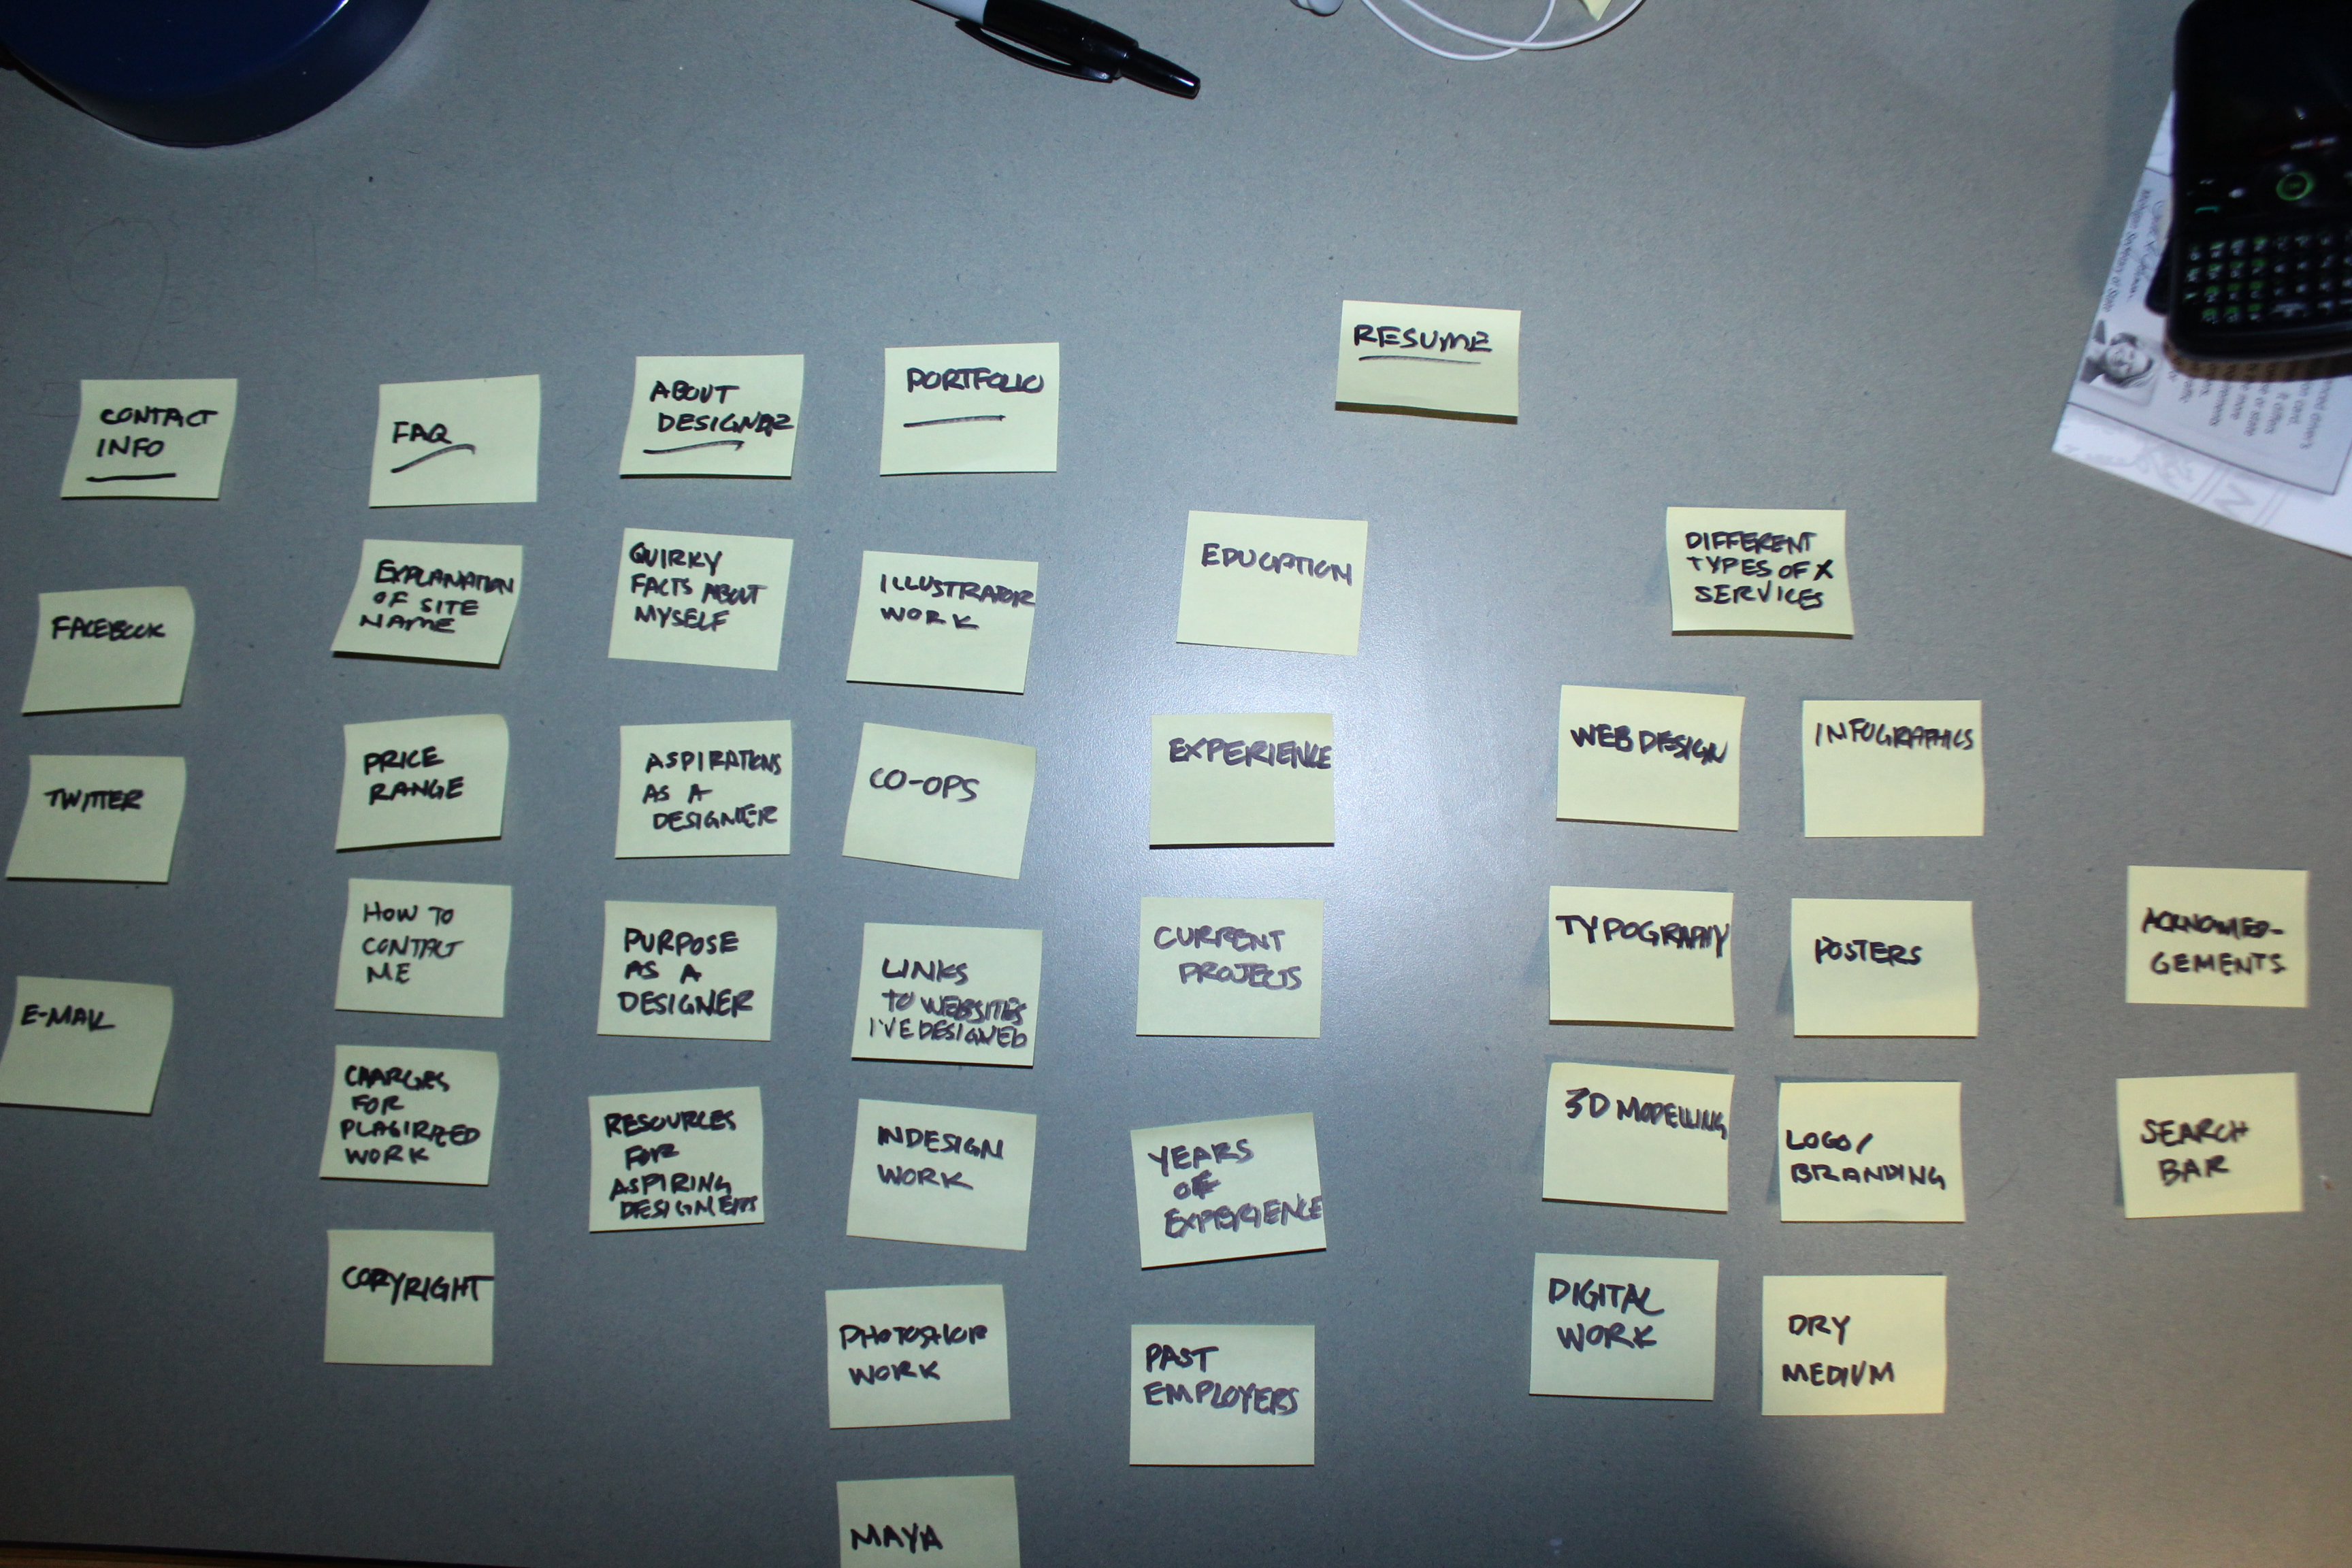 CONTACT
INFO
FACEBOOK
TWITTER
E-MAIL
FAQ
EXPLANATION
OF SITE
NAME
PRICE
RANGE
HOW TO
CONTACT
ME
CHARGES
FOR
PLAGIRIZED
WORK
COPYRIGHT
ABOUT
DESIGNER
QUIRKY
FACTS ABOUT
MYSELF
ASPIRATIONS
AS A
DESIGNER
PURPOSE
AS A
DESIGNER
RESOURCES
FOR
ASPIRING
DESIGNERS
PORTFOLIO
ILLUSTRATOR
WORK
CO-OPS
LINKS
TO WEBSITES
I'VE DESIGNED
INDESIGN
WORK
PHOTOSHOP
WORK
MAYA
RESUME
EDUCATION
EXPERIENCE
CURRENT
PROJECTS
YEARS
OF
EXPERIENCE
PAST
EMPLOYERS
DIFFERENT
TYPES OF X
SERVICES
WEB DESIGN
TYPOGRAPHY
3D MODELLING
DIGITAL
WORK
INFOGRAPHICS
POSTERS
LOGO/
BRANDING
DRY
MEDIUM
ACKNOWLED-
GEMENTS
SEARCH
BAR
Michigan Secretary of State